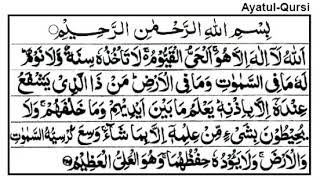 Ayatul-Qursi
بِسْمِ اللهِ الرَّحْمٰنِ الرَّحِيْمِ
اَللهُ لَآ اِلٰهَ اِلَّا هُوَ ۚ اَلْحَيُّ الْقَيُّوْمُ ۚ لَا تَاْخُذُهٗ سِنَةٌ وَّلَا نَوْمٌ ؕ
لَهٗ مَا فِي السَّمٰوٰتِ وَمَا فِي الْاَرْضِ ؕ مَنْ ذَا الَّذِيْ يَشْفَعُ
عِنْدَهٗٓ اِلَّا بِاِذْنِهٖ ؕ يَعْلَمُ مَا بَيْنَ اَيْدِيْهِمْ وَمَا خَلْفَهُمْ ۚ وَلَا
يُحِيْطُوْنَ بِشَيْءٍ مِّنْ عِلْمِهٖٓ اِلَّا بِمَا شَآءَ ۚ وَسِعَ كُرْسِيُّهُ السَّمٰوٰتِ
وَالْاَرْضَ ۚ وَلَا يَـُٔوْدُهٗ حِفْظُهُمَا ۚ وَهُوَ الْعَلِيُّ الْعَظِيْمُ